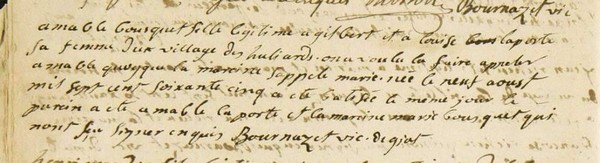 Bournazet vic
amable bousquet fille legitime a gilbert et a louise laporte
sa femme du village des hubiards on a voulu la faire appeler
amable quoyque la maraine sappele marie. née le neuf aoust
mil sept cent soixante cinq a eté batisée le meme jour le
parain a eté amable laporte et la maraine marie bousquet qui
nont sçu signer enquis Bournazet vic. de giat